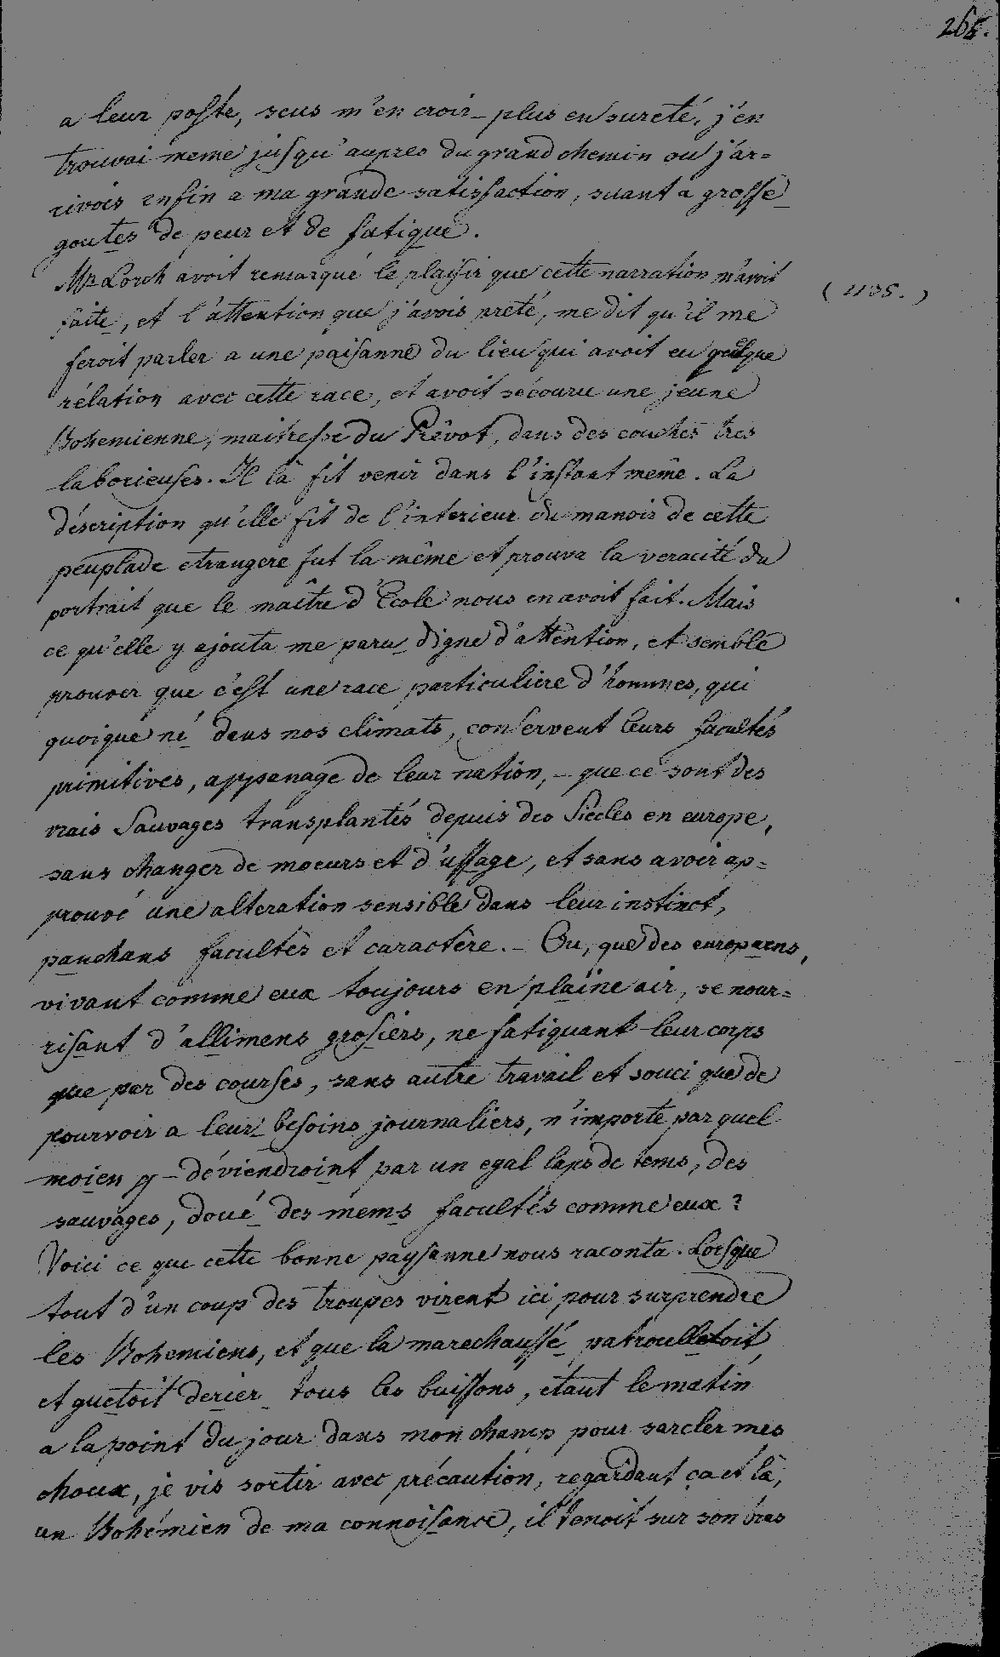 265.
a leur poste, sens m'en croir plus en sureté, j'en
trouvai meme jusqu'aupres du grand chemin ou j'ar=
rivois enfin a ma grande satisfaction, suant a grosse
goutes de peur et de fatique.
Mr. Lorch avoit remarqué le plaisir que cette narration m'avoit
faite, et l'attention que j'avois preté, me dit qu'il me
(1105.)
feroit parler a une paisanne du lieu qui avoit eu quelque
rélation avec cette race, et avoit sécouru une jeune
Bohemienne, maitresse du Prêvot, dans des couches tres
laborieuses. Il la fit venir dans l'instant même. La
déscription qu'elle fit de l'interieur du manoir de cette
peuplade etrangere fut la même et prouva la veracité du
portrait que le maître d'Ecole nous en avoit fait. Mais
ce qu'elle y ajouta me paru digne d'attention, et semble
prouver que c'est une race particuliere d'hommes, qui
quoique né dans nos climats, conservent leurs facultés
primitives, appanage de leur nation, – que ce sont des
vrais Sauvages transplantés depuis des Siécles en europe,
sans changer de moeurs et d'ussage, et sans avoir ap=
prouvé une alteration sensible dans leur instinct,
panchans facultés et caractère. – Ou, que des europaens,
vivant comme eux toujours en plaine air, se nour=
risant d'allimens grosiers, ne fatiquant leur corps
que par des courses, sans autre travail et souci que de
pourvoir a leur besoins journaliers, n'importe par quel
moien y déviendroint par un egal laps de tems, des
sauvages, doué des mems facultés comme eux?
Voici ce que cette bonne paysanne nous raconta. Lorsque
tout d'un coup des troupes virent ici pour surprendre
les Bohemiens, et que la marechaussé patroulletoit
et guetoit derier tous les buissons, etant le matin
a la point du jour dans mon champ pour sarcler mes
choux, je vis sortir avec précaution, regardant ça et là,
un Bohémien de ma connoisance, il tenoit sur son bras